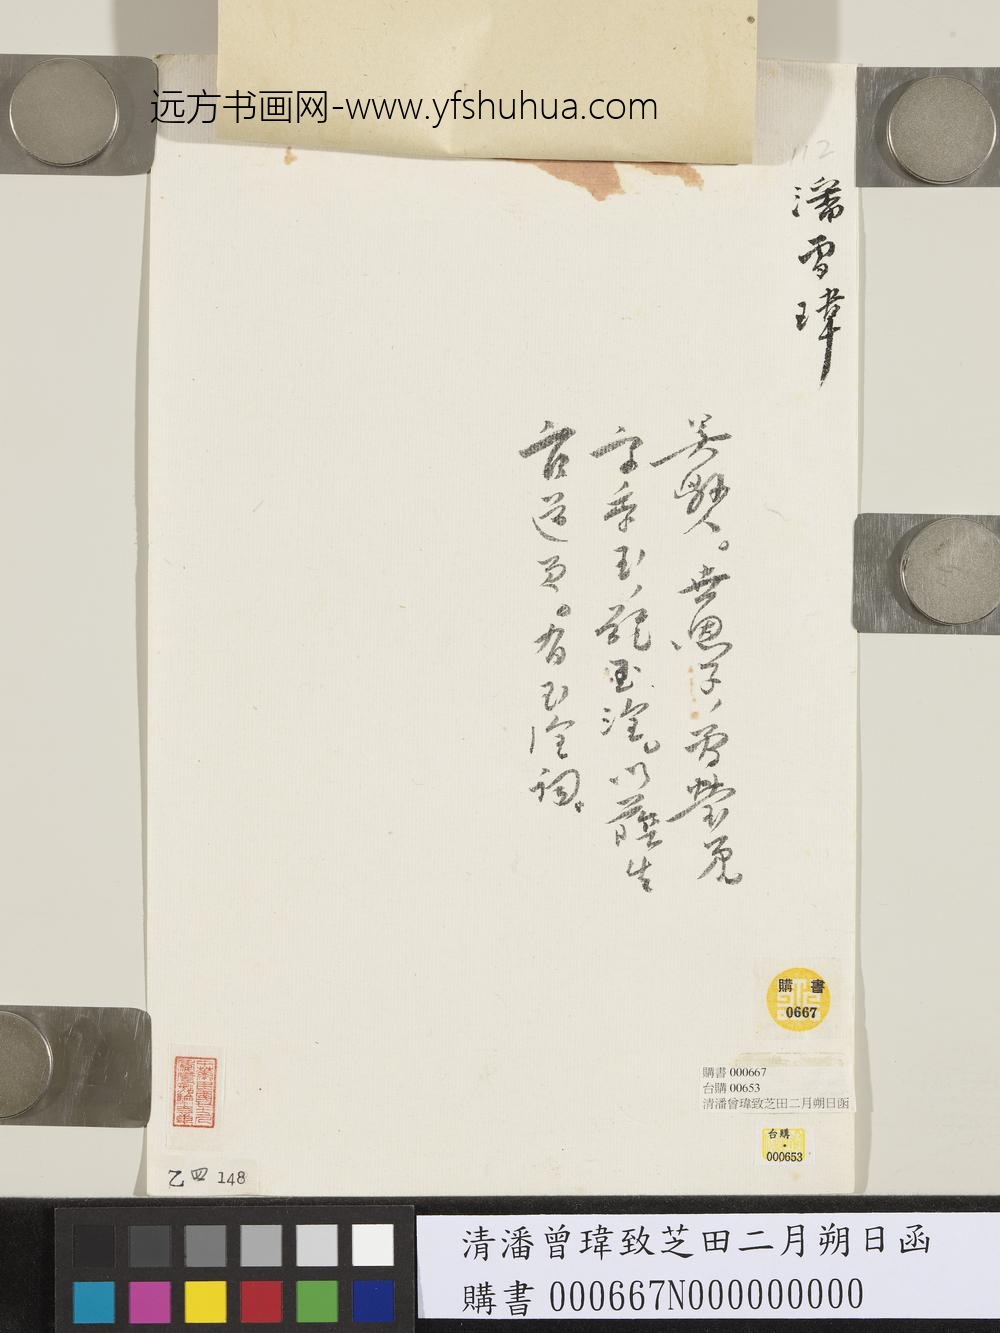 远方书画网-www.yfshuhua.com
112
潘曾瑋
吳縣人。世恩子，曾瑩弟。
字季玉，號玉淦。以蔭生
官道員。有玉淦詞。
購書
0667
購書 000667
台購 00653
清潘曾瑋致芝田二月朔日函
台購
000653
乙四 148
清潘曾瑋致芝田二月朔日函
購書 000667N000000000